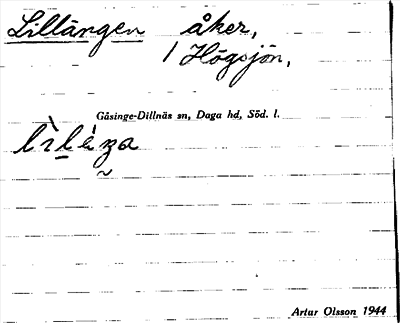 Lillängen åker,
1 Högsjön,
Gåsinge-Dillnäs sn, Daga hd, Söd. l.
Artur Olsson 1944